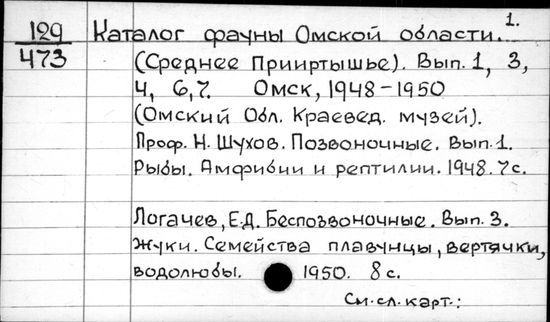 1.
129
473
Каталог фауны Омской области.
(Среднее Прииртышье). Вып. 1, 3,
4, 6, 7. Омск, 1948-1950
(Омский Обл. Краевед. музей).
Проф. Н. Шухов. Позвоночные. Вып. 1.
Рыбы. Амфибии и рептилии. 1948. 7 с.
Логачев, Е.Д. Беспозвоночные. Вып. 3.
Жуки. Семейства плавунцы, вертячки,
водолюбы. 1950. 8 с.
См. сл. карт.: